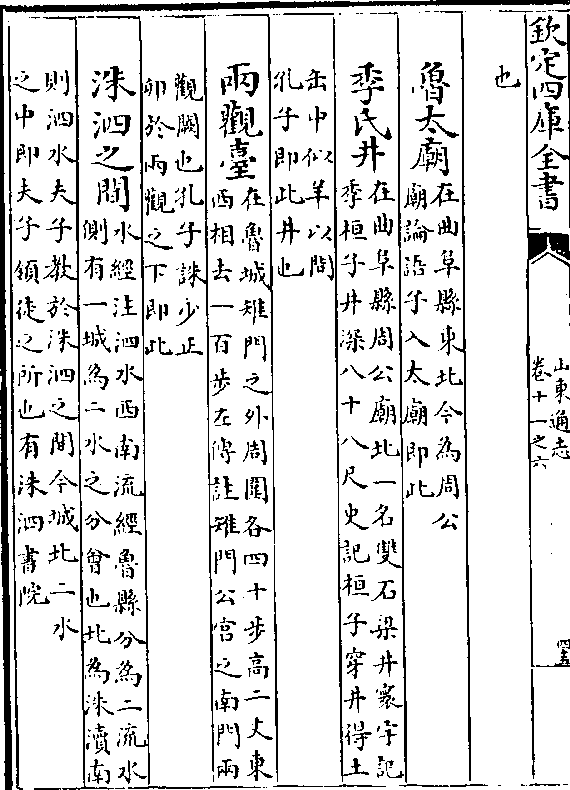 欽定四庫全書
山東通志
卷十一之六
四五
也
魯太廟
在曲阜縣東北今為周公
廟論語子入太廟即此
季氏井
在曲阜縣周公廟北一名雙石梁井寰宇記
季桓子井深八十八尺史記桓子穿井得土
缶中似羊以問
孔子即此井也
兩觀臺
在魯城雉門之外周圍各四十步高二丈東
西相去一百步左傳註雉門公宫之南門兩
觀闕也孔子誅少正
卯於兩觀之下即此
洙泗之間
水經注泗水西南流經魯縣分為二流水
側有一城為二水之分會也北為洙瀆南
則泗水夫子教於洙泗之間今城北二水
之中即夫子領徒之所也有洙泗書院